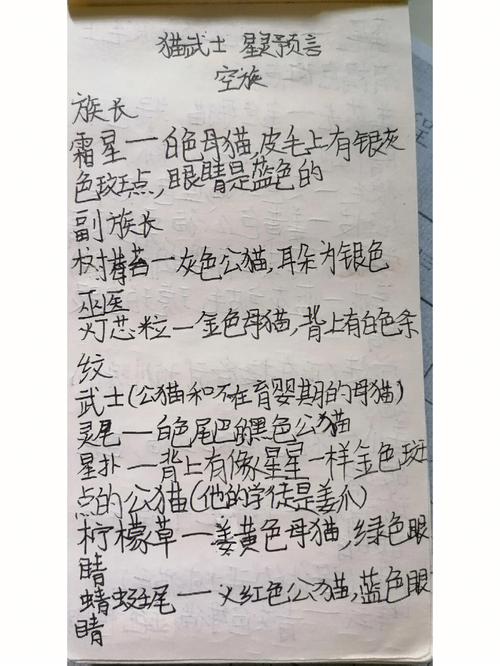 猫武士 星灵预言
空族
族长
霜星一白色母猫,皮毛上有银灰
色斑点,眼睛是蓝色的
副族长
树一灰色公猫,耳朵为银色
巫医
灯芯粒一金色母猫,背上有白色条
纹
武士(公猫和不在育婴期的母猫)
灵尾一白色尾巴的黑色公猫
星扑一背上有像星星一样金色斑
点的公猫(他的学徒是姜爪)
柠檬草一姜黄色母猫,绿色眼
睛
蜻蜓尾一火红色公猫,蓝色眼
睛